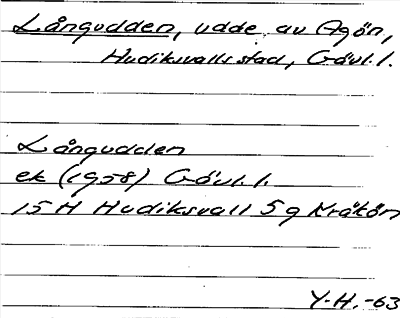 Långudden, udde av Agön,
Hudiksvalls stad, Gävl.l.
Långudden
ek (1958) Gävl.l.
15 H Hudiksvall 5 g Kråkön
Y-H.-63